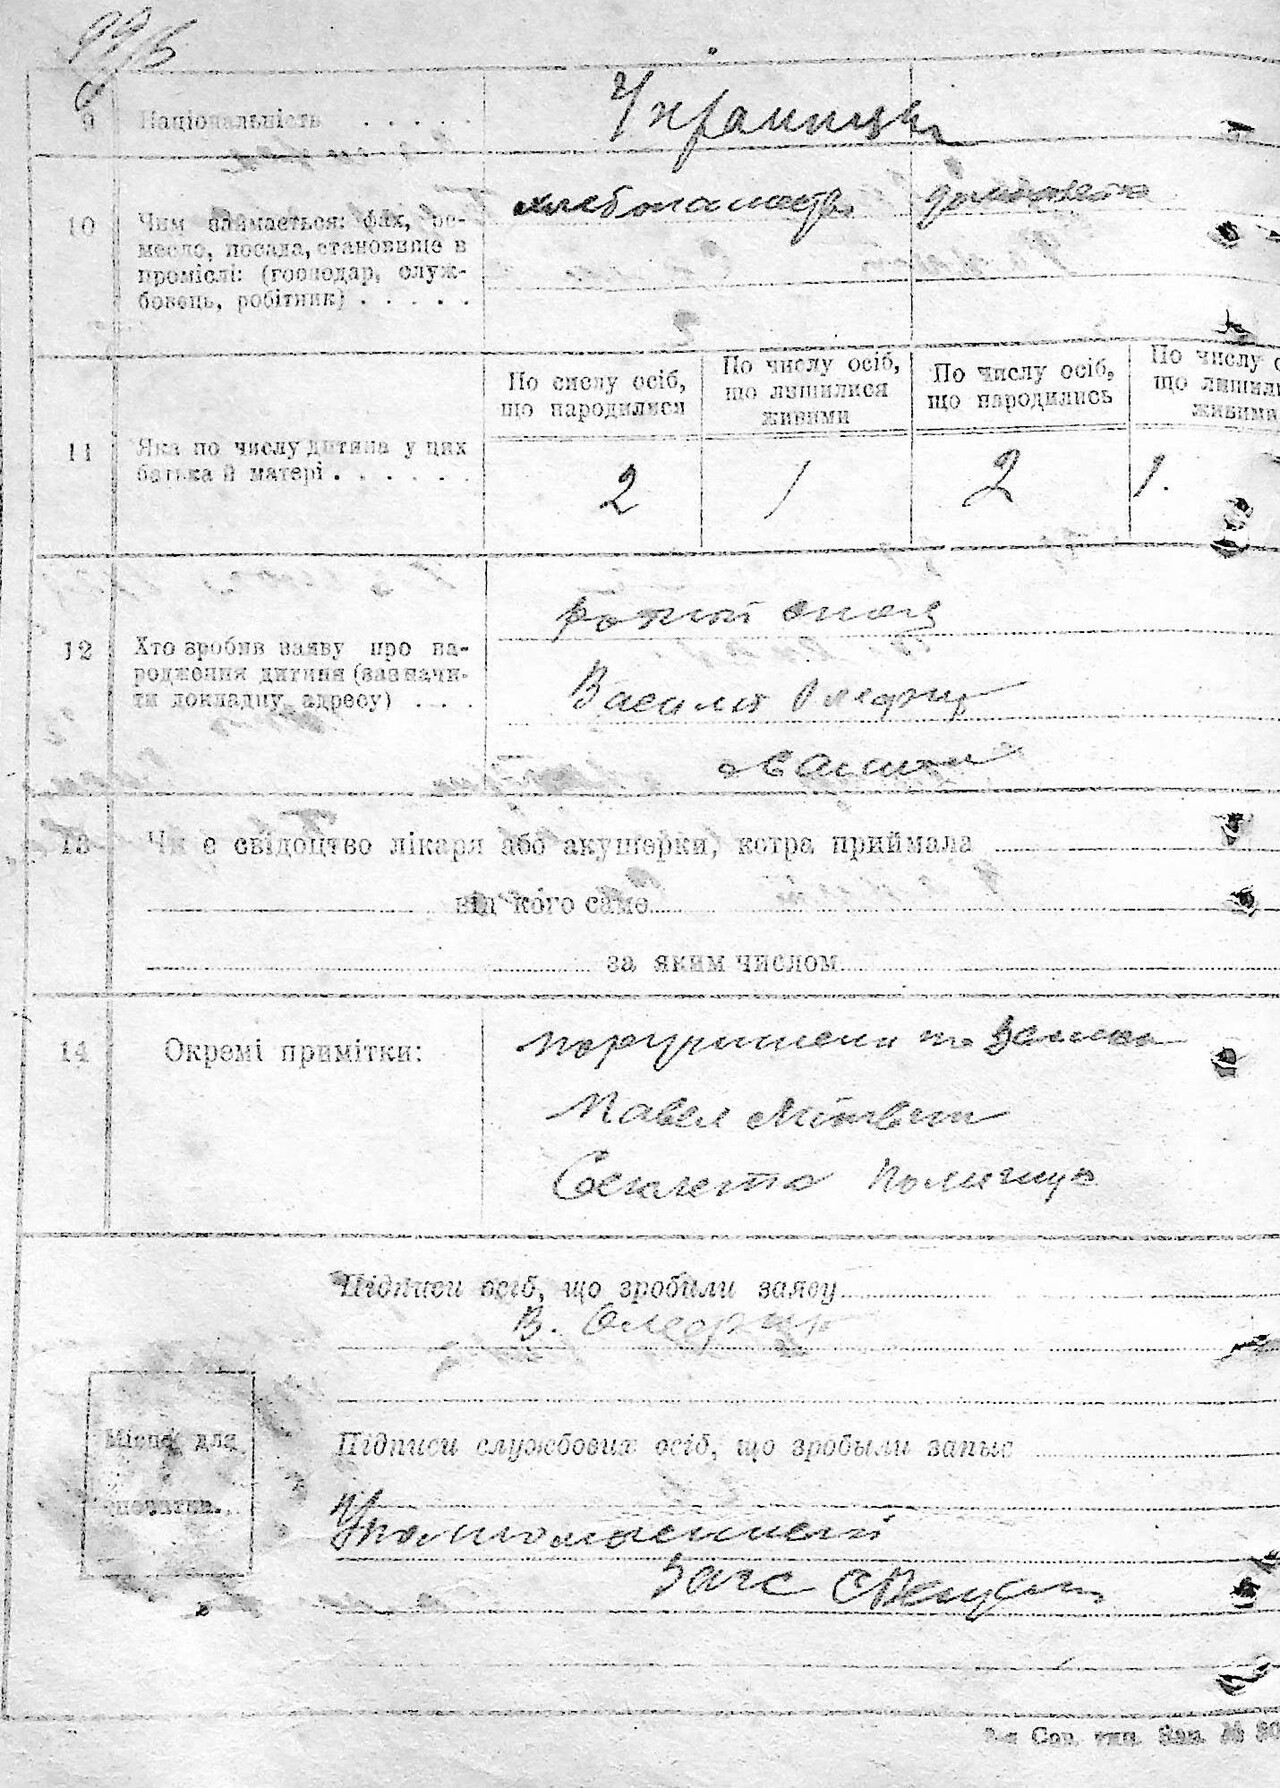 9 Національність . . . . .
Українці
10 Чим займається: фах, ре-
месло, посада, становище в
проміслі: (господар, служ-
бовець, робітник) . . . . .
хлібопашество
11 Яка по числу дитина у цих
батька й матері . . . . . .
По сислу осіб,
що народилися
По числу осіб,
що лишилися
живими
По числу осіб,
що народились
По числу
що лишил
живими
2 1 2 1.
12 Хто зробив заяву про на-
родження дитини (зазначи-
ти докладну адресу) . . .
рідний отец
Василий Олефир
13 Чи є свідоцтво лікаря або акушерки, котра приймала
від кого саме
за яким числом
14 Окремі примітки:
Павел
Секлета Полищук
Підписи осіб, що зробили заяву
В. Олефир
Місце для
печатки.
Підписи службових осіб, що зробыли запыс
Уполномоченный
Загс
Сов. тип. Зам. №